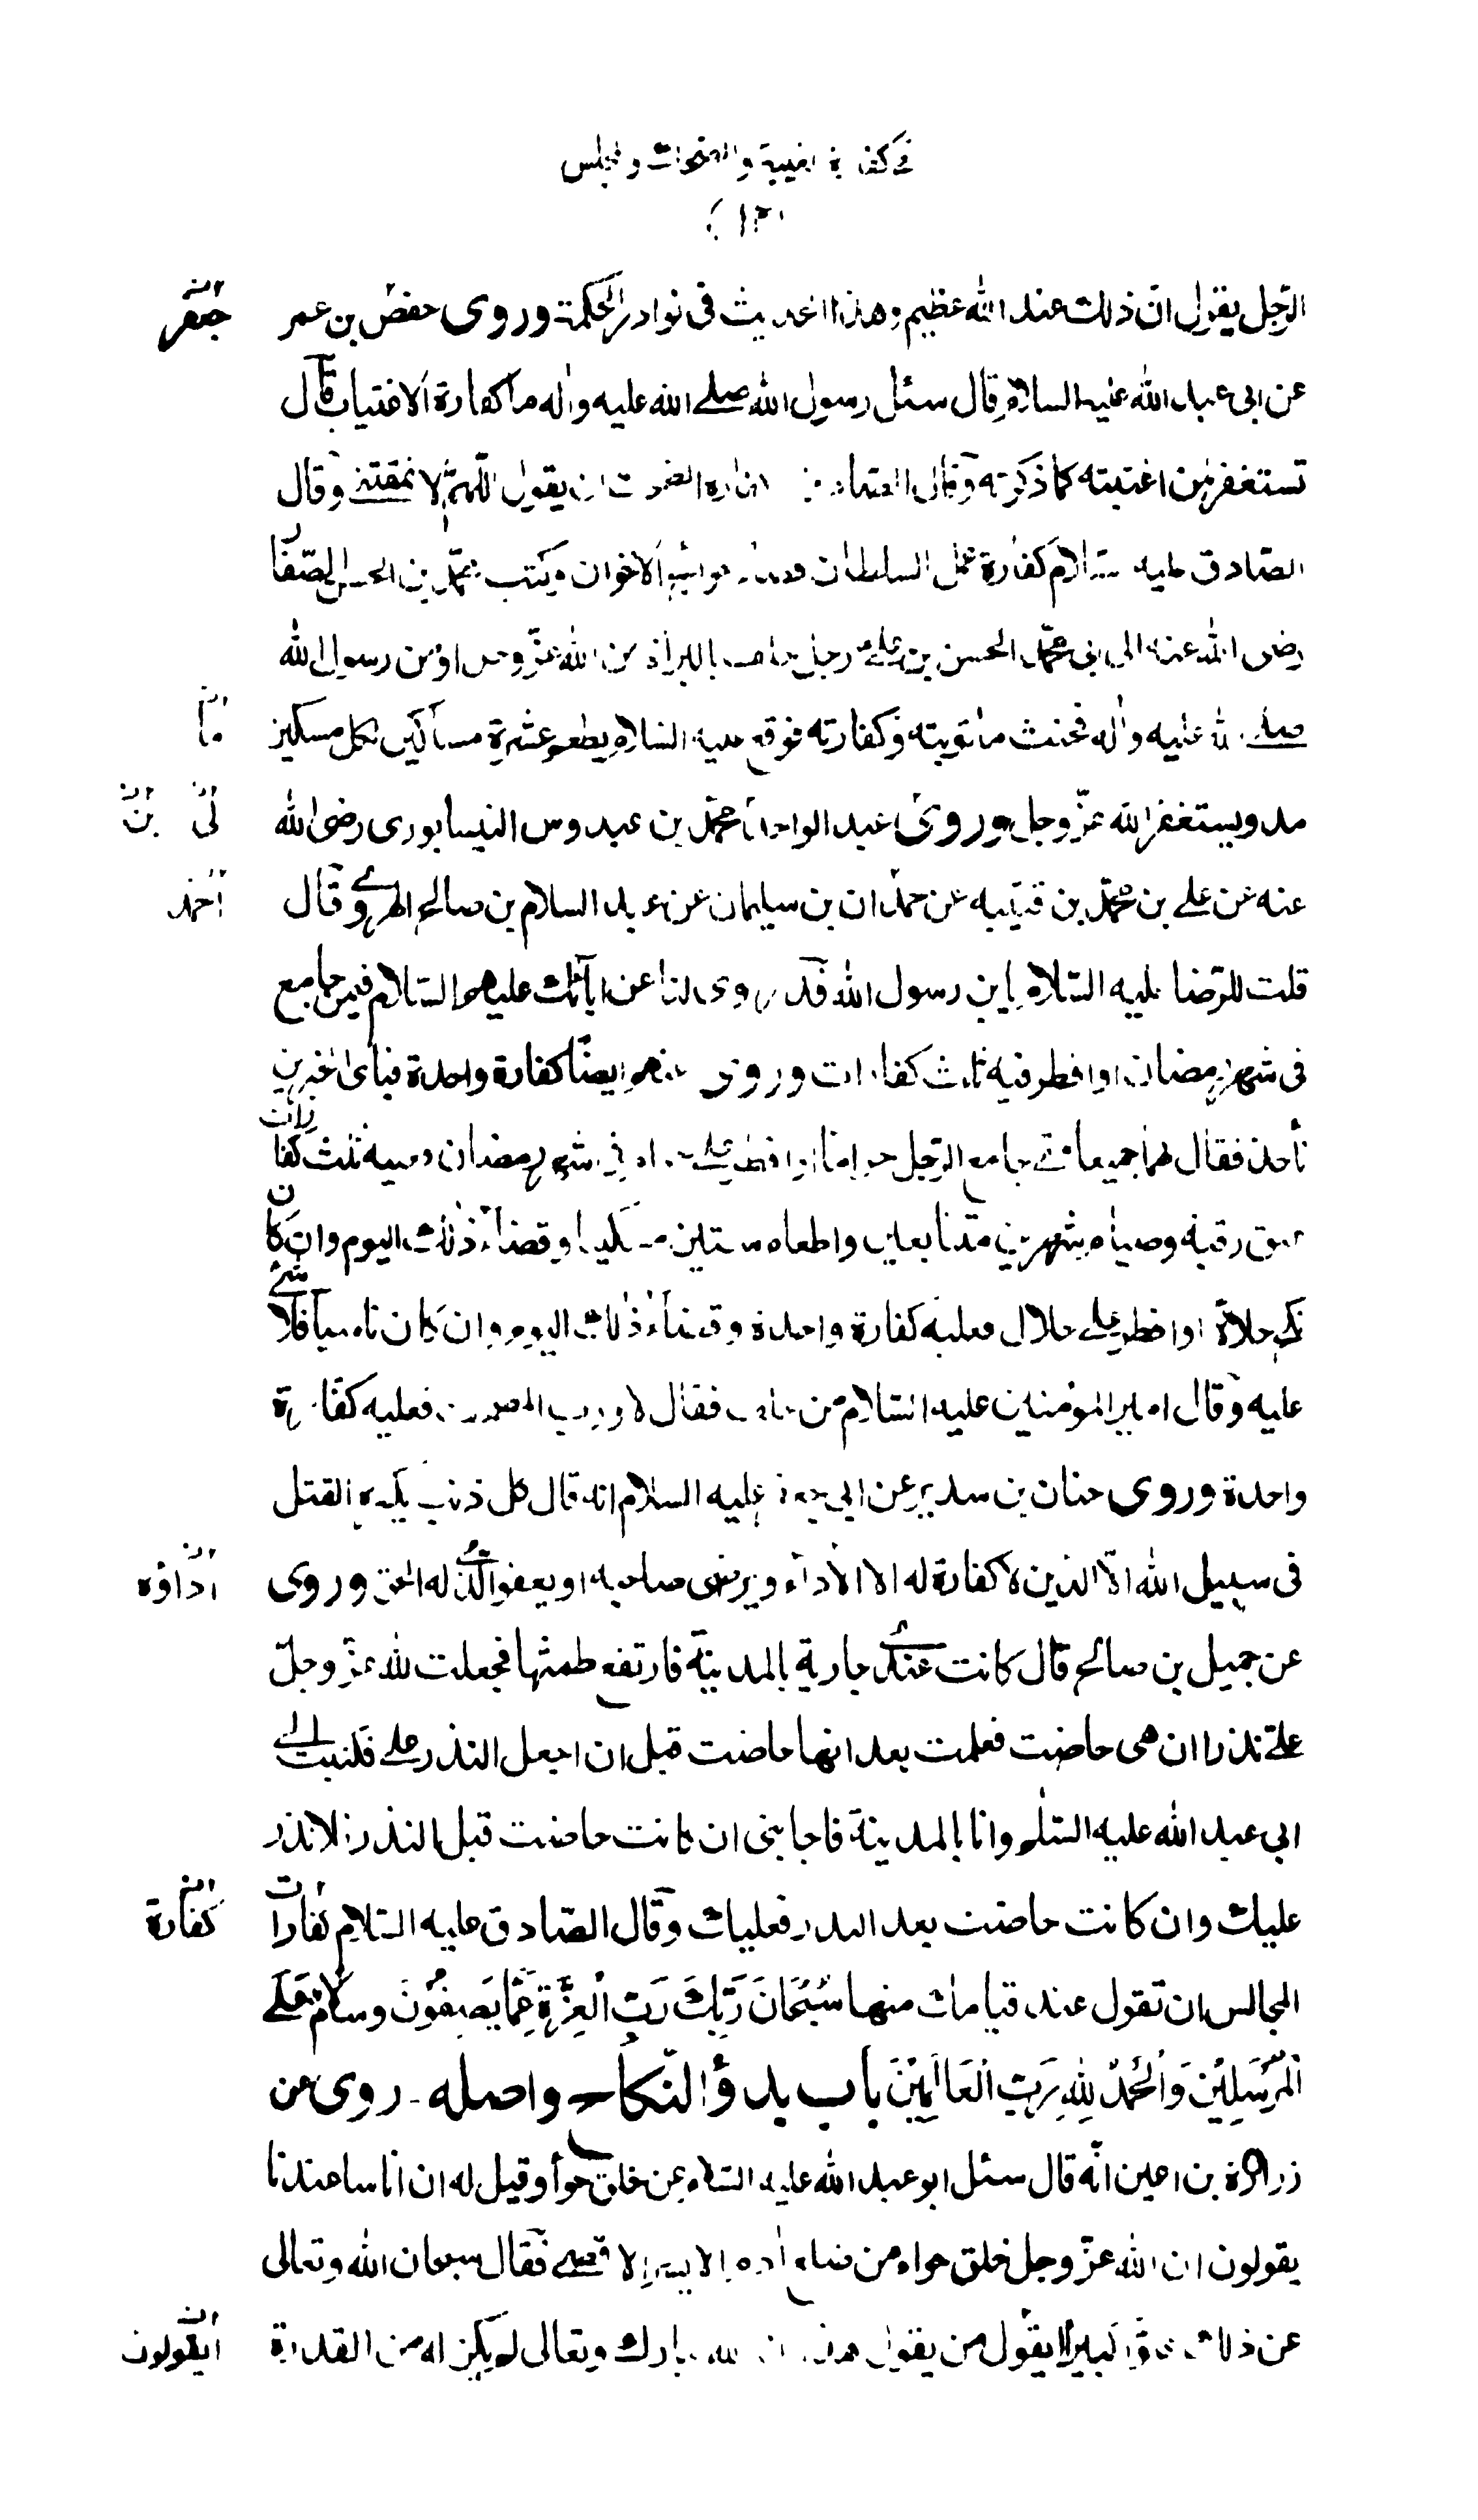 في كفارة الغيبة والضحك والمجلس
الرجل يقول ان ذلك عند الله عظيم وهذا الحديث فى نوادر الحكمة وروى حفص بن عمر جعفر
عن ابى عبد الله عليه السلام قال سئل رسول الله صلے الله عليه واله ما كفارة الاغتياب قال
تستغفر لمن اغتبته كما ذكرته وقال الصادق كفارة الضحك ان يقول اللهم لا تمقتنى وقال
الصادق عليه السلام كفارة عمل السلطان قضاء حوائج الاخوان وكتب محمد بن الحسن الصفار
رضى الله عنه الى ابى محمد الحسن بن على رجل حلف بالبراءة من الله عز وجل او من رسول الله
صلے الله عليه واله فحنث ما توبته وكفارته فوقع عليه السلام يطعم عشرة مساكين لكل مسكين ما
مد ويستغفر الله عز وجل وروى عبد الواحد بن محمد بن عبدوس النيسابورى رضى الله لى بن
عنه عن علے بن محمد بن قتيبه عن حمدان بن سليمان عن عبد السلام بن صالح الهروے قال احمد
قلت للرضا عليه السلام يا بن رسول الله قد روى لنا عن ابائك عليهم السلام فيمن جامع
فى شهر رمضان او افطر فيه ثلث كفارات وروى عنهم ايضا كفارة واحدة فباى الخبرين
نأخذ فقال بهما جميعا متى جامع الرجل حراما او افطر على حرام فى شهر رمضان فعليه ثلث كفارات
عتق رقبه وصيام شهرين متتابعين واطعام ستين مسكينا وقضاء ذلك اليوم وان كان
نكح حلالا او افطر على حلال فعليه كفارة واحدة وقضاء ذلك اليوم وان كان ناسيا فلا شئ
عليه وقال امير المؤمنين عليه السلام من حلف فقال لا ورب المصحف فعليه كفارة
واحدة وروى حنان بن سدير عن ابي جعفر عليه السلام انه قال كل ذنب يكفره القتل
فى سبيل الله الا الدين لا كفارة له الا الاداء ويرضى صاحبه او يعفو الذى له الحق وروى اداؤه
عن جميل بن صالح قال كانت عندى جارية بالمدينة فارتفع طمثها فجعلت لله عز وجل
على نذرا ان هى حاضت فعلمت بعد انها حاضت قبل ان اجعل النذر علے فكتبت الى
ابى عبد الله عليه السلم وانا بالمدينة فاجابنى ان كانت حاضت قبل النذر فلا نذر
عليك وان كانت حاضت بعد النذر فعليك وقال الصادق عليه السلام كفارات كفارة
المجالس ان تقول عند قيامك منها سُبْحَانَ رَبِّكَ رَبِّ الْعِزَّةِ عَمَّا يَصِفُونَ وسلام على
الْمُرْسَلِيْنَ وَالْحَمْدُ لِلّهِ رَبِّ الْعَالَمِيْنَ باب بدؤ النكاح واصله - روى عن
زرارة بن اعين انه قال سئل ابو عبد الله عليه السلام عن خلق حوا وقيل له ان اناسا عندنا
يقولون ان الله عز وجل خلق حواء من ضلع ادم الايسر الاقصى فقال سبحان الله وتعالى
عن ذلك علوا كبيرا يقول من يقول هذا ان الله تبارك وتعالى لم يكن له من القدرة ايقولون